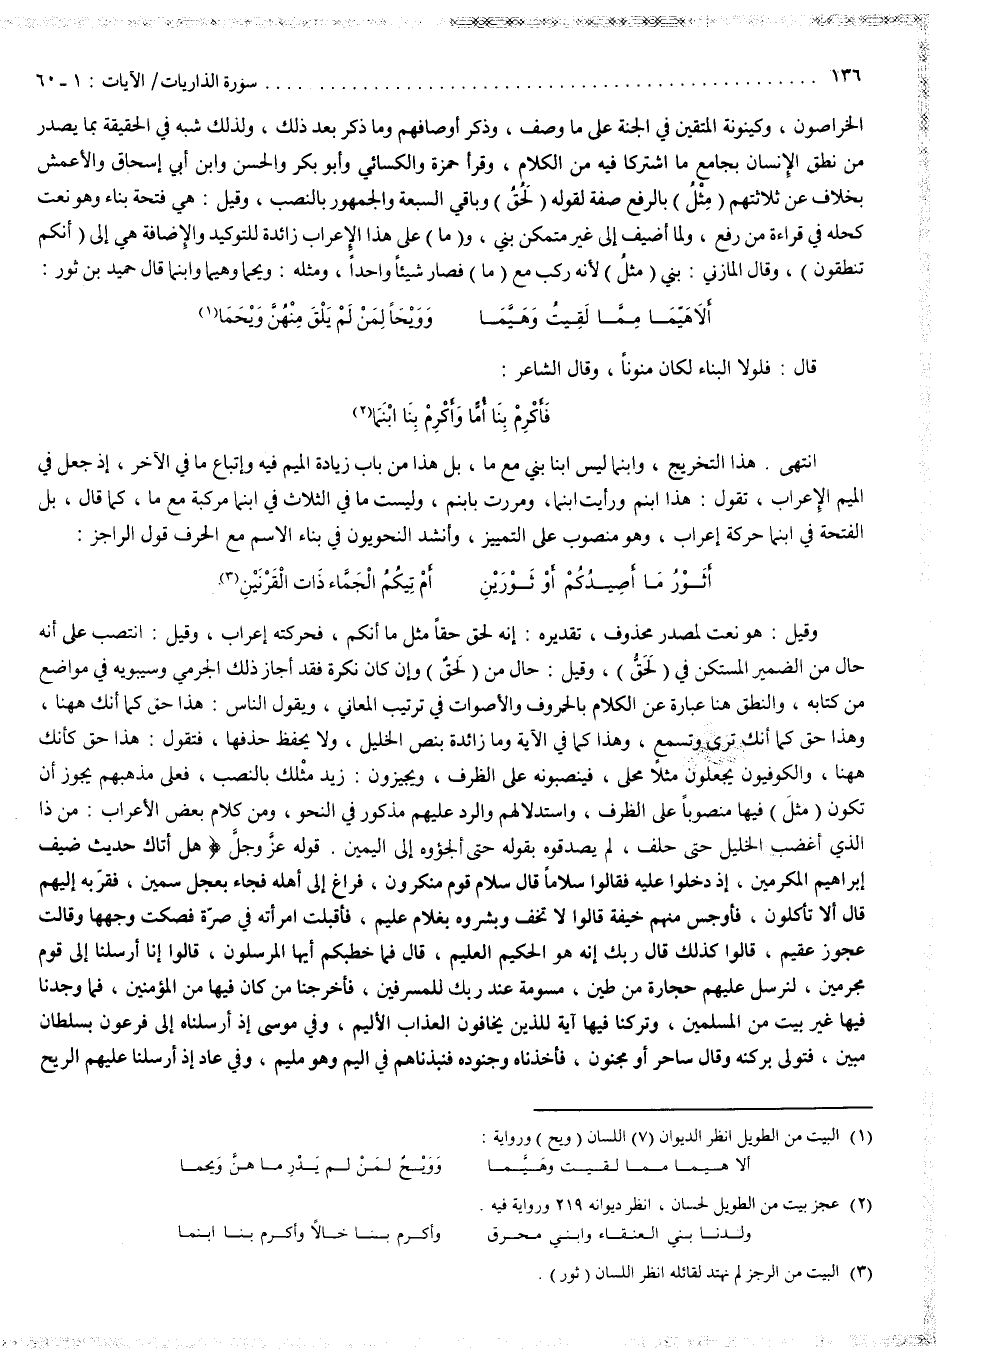 ١٣٦ ..................................................... سورة الذاريات/ الآيات : ١ ـ ٦٠
الخراصون ، وكينونة المتقين في الجنة على ما وصف ، وذكر أوصافهم وما ذكر بعد ذلك ، ولذلك شبه في الحقيقة بما يصدر
من نطق الإنسان بجامع ما اشتركا فيه من الكلام ، وقرأ حمزة والكسائي وأبو بكر والحسن وابن أبي إسحاق والأعمش
بخلاف عن ثلاثتهم ( مِثْلُ ) بالرفع صفة لقوله ( لَحُقُ ) وباقي السبعة والجمهور بالنصب ، وقيل : هي فتحة بناء وهو نعت
كحله في قراءة من رفع ، ولما أضيف إلى غير متمكن بني ، و( ما ) على هذا الإعراب زائدة للتوكيد والإضافة هي إلى ( أنكم
تنطقون ) ، وقال المازني : بني ( مثلُ ) لأنه ركب مع ( ما ) فصار شيئاً واحداً ، ومثله : ويحما وهيما وابنما قال حميد بن ثور :
أَلَا هَيَّمَـا مِمَّـا لَقِيتُ وَهَيَّمَـا وَوَيْحَاً لِمَنْ لَمْ يَلْقَ مِنْهُنَّ وَيْحَمَا(١)
قال : فلولا البناء لكان منوناً ، وقال الشاعر :
فَأَكْرِمْ بِنَا أُمًّا وَأَكْرِمْ بِنَا ابْنَمَا(٢)
انتهى . هذا التخريج ، وابنما ليس ابنا بني مع ما ، بل هذا من باب زيادة الميم فيه وإتباع ما في الآخر ، إذ جعل في
الميم الإعراب ، تقول : هذا ابنم ورأيت ابنما، ومررت بابنم ، وليست ما في الثلاث في ابنما مركبة مع ما ، كما قال ، بل
الفتحة في ابنما حركة إعراب ، وهو منصوب على التمييز ، وأنشد النحويون في بناء الاسم مع الحرف قول الراجز :
أَثَـوْرُ مَـا أَصِيـدُكُمْ أَوْ ثَـوْرَيْنِ أَمْ تِيكُمُ الْجَمَّاء ذَات الْقَرْنَيْنِ(٣)
وقيل : هو نعت لمصدر محذوف ، تقديره : إنه لحق حقاً مثل ما أنكم ، فحركته إعراب ، وقيل : انتصب على أنه
حال من الضمير المستكن في ( لَحَقُّ ) ، وقيل : حال من ( لَحَقٌ ) وإن كان نكرة فقد أجاز ذلك الجرمي وسيبويه في مواضع
من كتابه ، والنطق هنا عبارة عن الكلام بالحروف والأصوات في ترتيب المعاني ، ويقول الناس : هذا حق كما أنك ههنا ،
وهذا حق كما أنك ترى وتسمع ، وهذا كما في الآية وما زائدة بنص الخليل ، ولا يحفظ حذفها ، فتقول : هذا حق كأنك
ههنا ، والكوفيون يجعلون مثلًا محلى ، فينصبونه على الظرف ، ويجيزون : زيد مثْلك بالنصب ، فعلى مذهبهم يجوز أن
تكون ( مثلَ ) فيها منصوباً على الظرف ، واستدلالهم والرد عليهم مذكور في النحو ، ومن كلام بعض الأعراب : من ذا
الذي أغضب الخليل حتى حلف ، لم يصدقوه بقوله حتى ألجؤوه إلى اليمين . قوله عزَّ وجلَّ ﴿ هل أتاك حديث ضيف
إبراهيم المكرمين ، إذ دخلوا عليه فقالوا سلاماً قال سلام قوم منكرون ، فراغ إلى أهله فجاء بعجل سمين ، فقرّبه إليهم
قال ألا تأكلون ، فأوجس منهم خيفة قالوا لا تخف وبشروه بغلام عليم ، فأقبلت امرأته في صرّة فصكت وجهها وقالت
عجوز عقيم ، قالوا كذلك قال ربك إنه هو الحكيم العليم ، قال فما خطبكم أيها المرسلون ، قالوا إنا أرسلنا إلى قوم
مجرمين ، لنرسل عليهم حجارة من طين ، مسومة عند ربك للمسرفين ، فأخرجنا من كان فيها من المؤمنين ، فما وجدنا
فيها غير بيت من المسلمين ، وتركنا فيها آية للذين يخافون العذاب الأليم ، وفي موسى إذ أرسلناه إلى فرعون بسلطان
مبين ، فتولى بركنه وقال ساحر أو مجنون ، فأخذناه وجنوده فنبذناهم في اليم وهو مليم ، وفي عاد إذ أرسلنا عليهم الريح
(١) البيت من الطويل انظر الديوان (٧) اللسان ( ويح ) ورواية :
ألا هـيـمـا مـمـا لـقـيـت وهَـيَّـمـا وَوَيْـحٌ لـمَـنْ لـم يَـدْرِ مـا هـنَّ وَيحمـا
(٢) عجز بيت من الطويل لحسان ، انظر ديوانه ٢١٩ ورواية فيه .
ولـدنـا بـني الـعـنـقـاء وابـنـي مـحـرق وأكـرم بـنـا خـالاً وأكـرم بـنـا ابـنـما
(٣) البيت من الرجز لم نهتد لقائله انظر اللسان ( ثور ) .